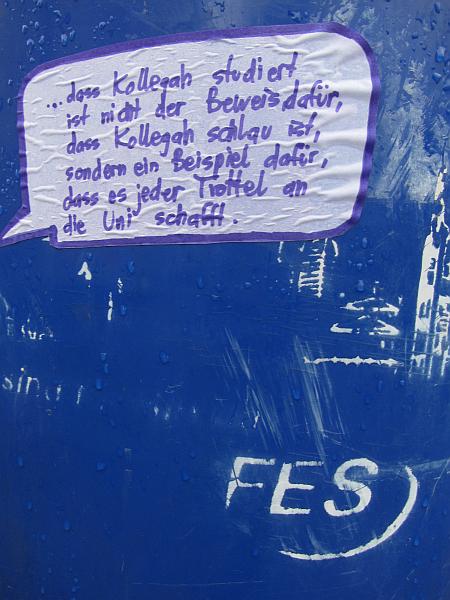 ...dass Kollegah studiert
ist nicht der Beweis dafür,
dass Kollegah schlau ist,
sondern ein Beispiel dafür,
dass es jeder Trottel an
die Uni schafft.
FES